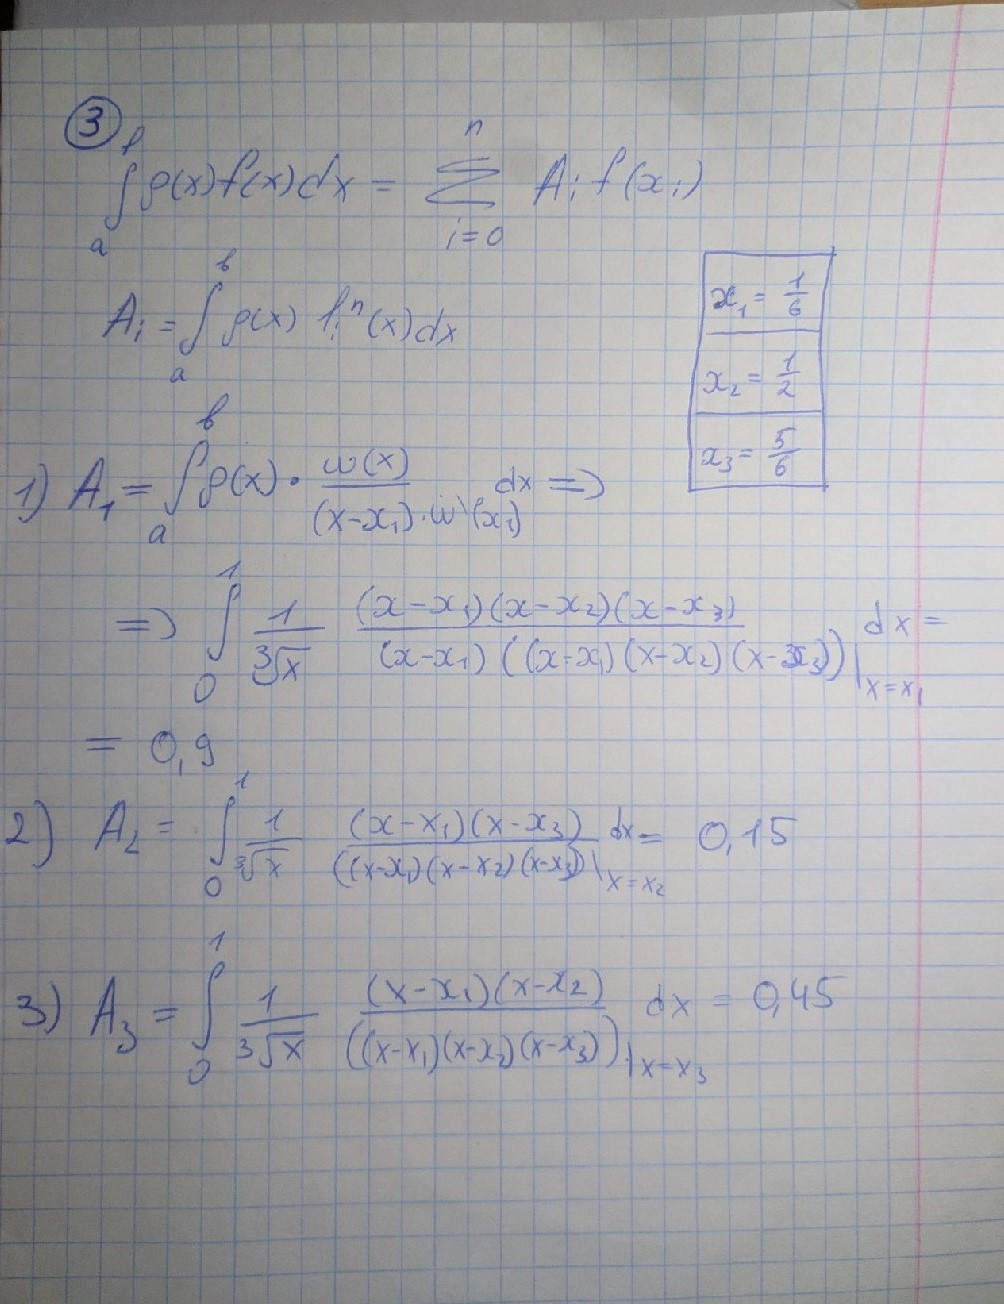 ③
∫ₐᵇ ρ(x)f(x)dx = Σᵢ₌₀ⁿ Aᵢ f(xᵢ)
Aᵢ = ∫ₐᵇ ρ(x) lᵢⁿ(x)dx
x₁ = 1/6
x₂ = 1/2
x₃ = 5/6
1) A₁ = ∫ₐᵇ ρ(x) · ω(x) / ((x-x₁)·ω'(x₁)) dx =>
=> ∫₀¹ 1/∛x (x-x₁)(x-x₂)(x-x₃) / ((x-x₁)((x-x₁)(x-x₂)(x-x₃))|ₓ₌ₓ₁) dx =
= 0,9
2) A₂ = ∫₀¹ 1/∛x (x-x₁)(x-x₃) / ((x-x₁)(x-x₂)(x-x₃))|ₓ₌ₓ₂ dx = 0,15
3) A₃ = ∫₀¹ 1/∛x (x-x₁)(x-x₂) / ((x-x₁)(x-x₂)(x-x₃))|ₓ₌ₓ₃ dx = 0,45